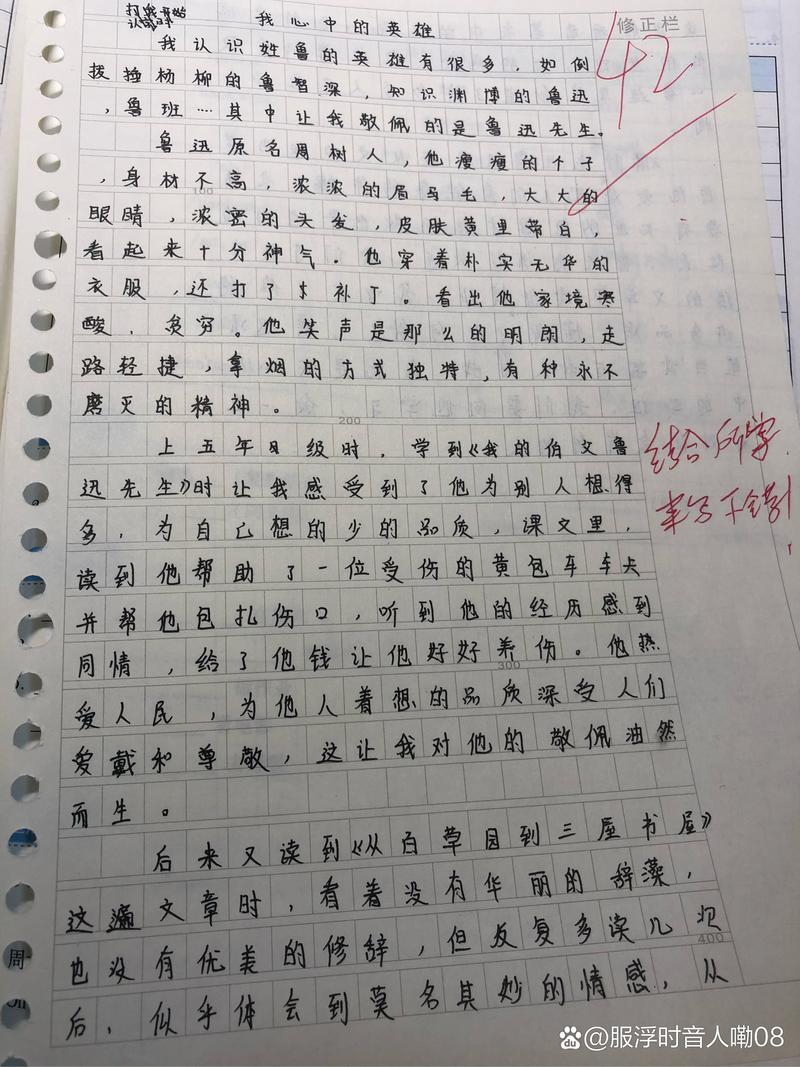 打我开始
认字时
我心中的英雄
修正栏
42
我认识姓鲁的英雄有很多，如倒
拨捶杨柳的鲁智深，知识渊博的鲁迅
，鲁班····其中让我敬佩的是鲁迅先生。
鲁迅原名周树人，他瘦瘦的个子
，身材不高，浓浓的眉马毛，大大的
100
眼睛，浓密的头发，皮肤黄里带白，
看起来十分神气。他穿着朴实无华的
衣服，还打了5补丁。看出他家境寒
酸，贫穷。他笑声是那么的明朗，走
路轻捷，拿烟的方式独特，有种永不
磨灭的精神。
200
上五年日级时，学到《我的伯文鲁
迅先生》时让我感受到了他为别人想得
多，为自己想的少的品质，课文里，
读到他帮助了一位受伤的黄包车车夫
并帮他包扎伤口，听到他的经历感到
同情，给了他钱让他好好养伤。他热
300
爱人民，为他人着想的品质深受人们
爱戴和尊敬，这让我对他的敬佩油然
而生。
结合所学
来写不错！
后来又读到《从百草园到三屋书屋》
这遍文章时，看着没有华丽的辞藻，
也没有优美的修辞，但反复多读几次
400
后，似乎体会到莫名其妙的情感，从
周
@服浮时音人嘞08